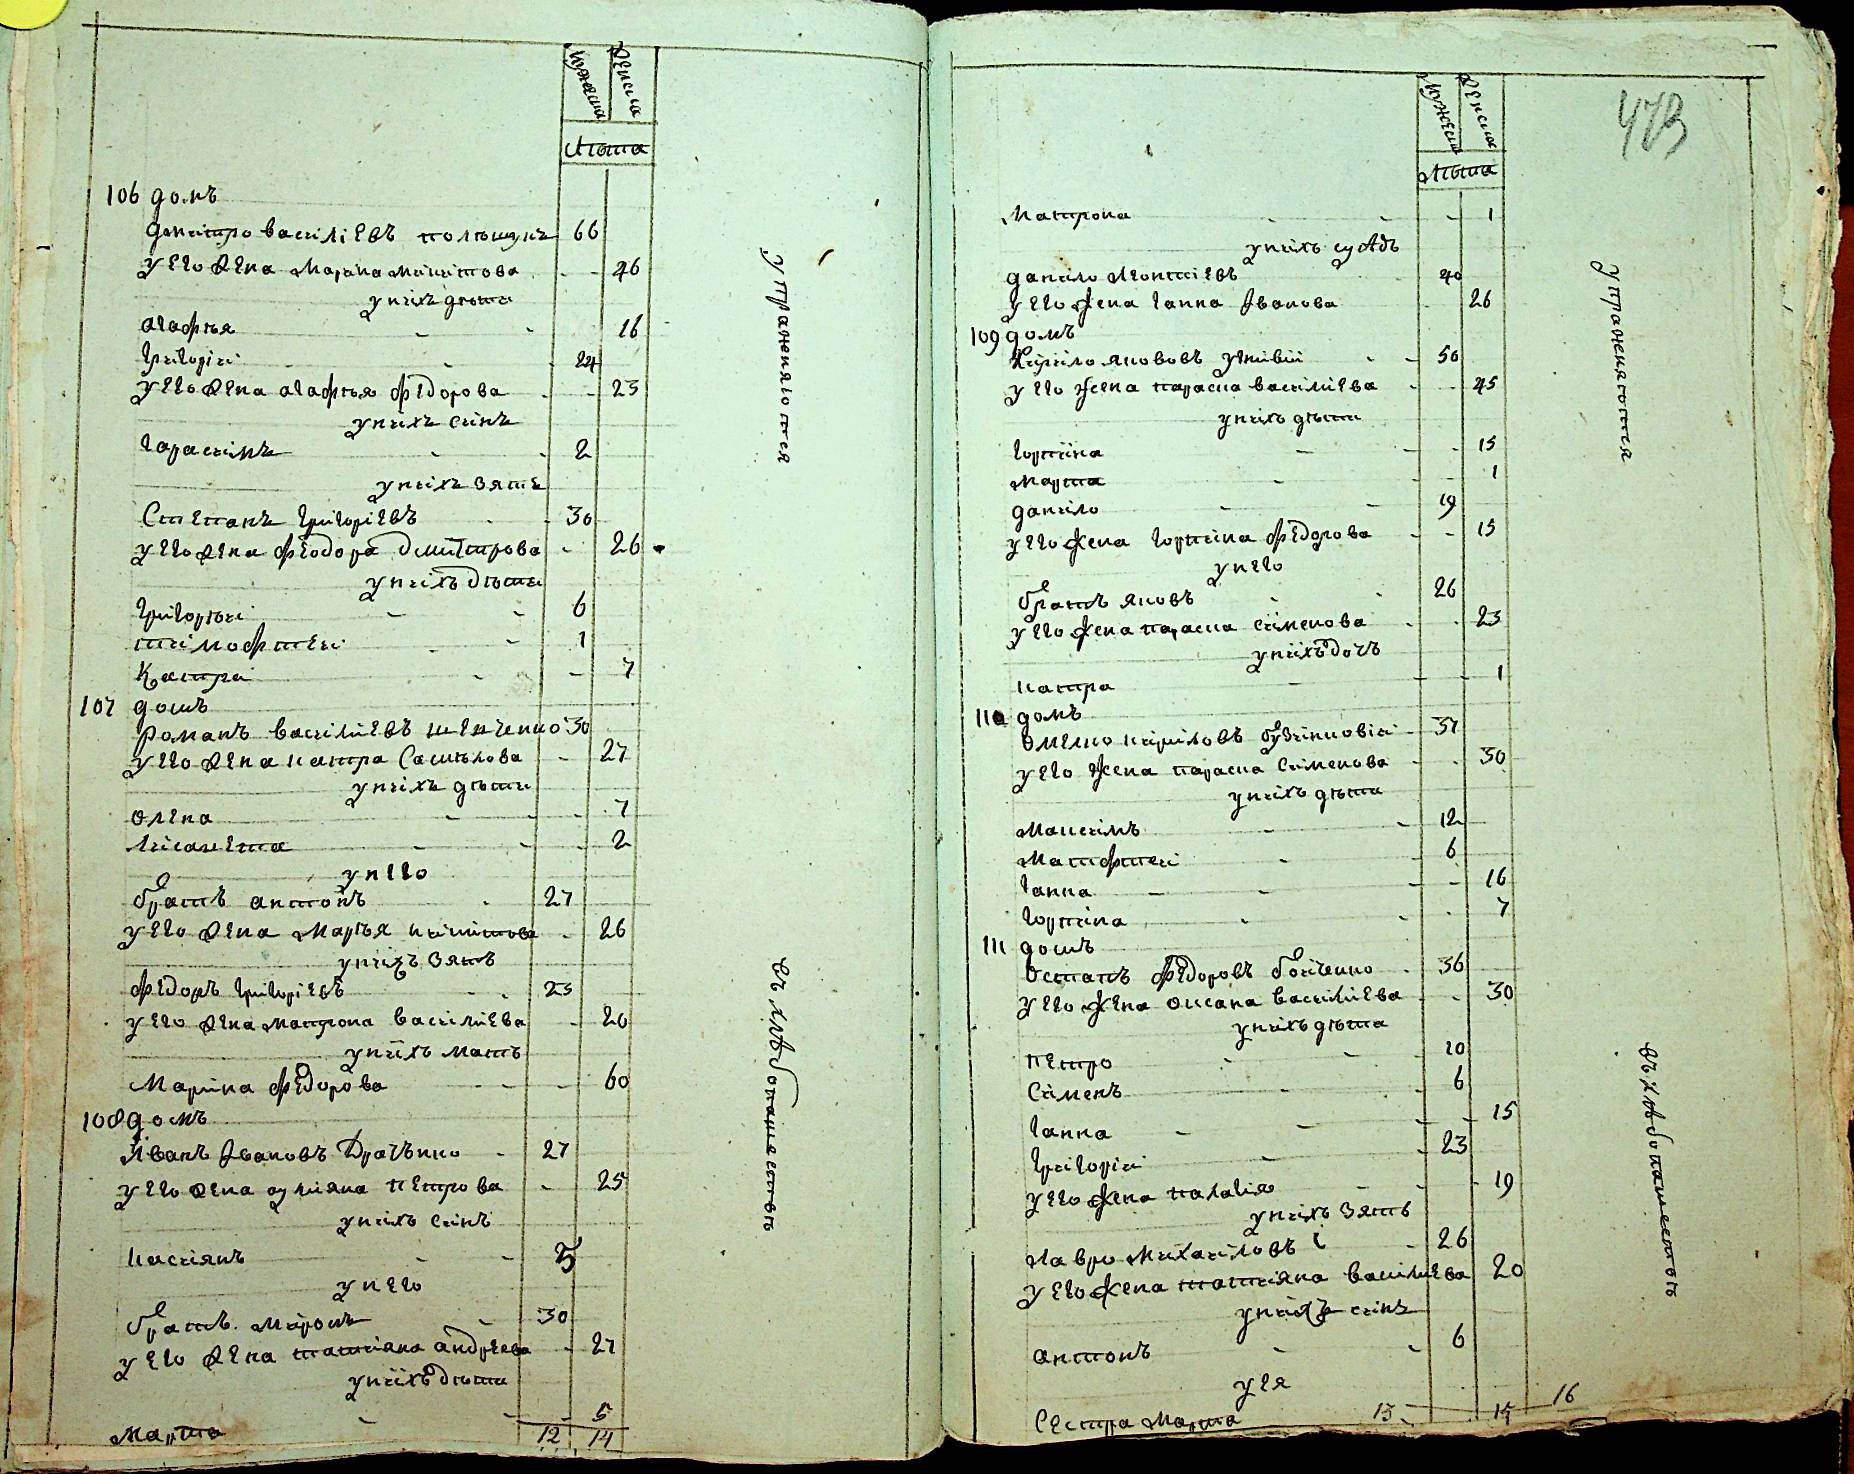 мужеска
женска
лѣта
106 домъ
Дмитро василіевъ 66
у его жена Марина Микитова 46
у нихъ дѣти
агафѣя 16
григоріи 24
у его жена агафѣя федорова 23
у нихъ синъ
гарасимъ 2
у нихъ зять
Степанъ григоріевъ 30
у его жена феодора Дмитрова 26
у нихъ дѣти
григорѣи 6
тимофтеи 1
Катря 7
107 домъ
романъ василиевъ шевченко 30
у его жена катря Самилова 27
у нихъ дѣти
олена 7
лисавета 2
у него
братъ антонъ 27
у его жена Марѣя никитова 26
у нихъ зять
федоръ григоріевъ 23
у его жена матрона василиева 20
у нихъ мать
Марина федорова 60
108 домъ
Иванъ Ивановъ Драченко 27
у его жена улияна петрова 25
у нихъ синъ
касиянъ 5
у него
братъ миронъ 30
у его жена татияна андреева 27
у нихъ дѣти
Марта 5
12 14
упраженяются
въ хлѣбопашествѣ
473
мужеска
женска
лѣта
Матрона 1
у нихъ сусѣдъ
данило леонтиевъ 40
у его жена ганна Иванова 26
109 домъ
Кирило якововъ 50
у его жена параска василиева 45
у нихъ дѣти
горпина 15
Марта 1
данило 19
у его жена горпина федорова 15
у него
братъ яковъ 26
у его жена параска сименова 23
у нихъ дочъ
катря 1
110 домъ
омелко кириловъ 37
у его жена параска сименова 30
у нихъ дѣти
Максимъ 12
Матфтеи 6
ганна 16
горпина 7
111 домъ
остапъ федоровъ бойченко 36
у его жена оксана василиева 30
у нихъ дѣти
петро 10
Сименъ 6
ганна 15
григоріи 23
у его жена палагия 19
у нихъ зять
лавро михаиловъ 26
у его жена татияна василиева 20
у нихъ синъ
антонъ 6
у ея
Сестра Марта 16
13 15
упраженяются
въ хлѣбопашествѣ